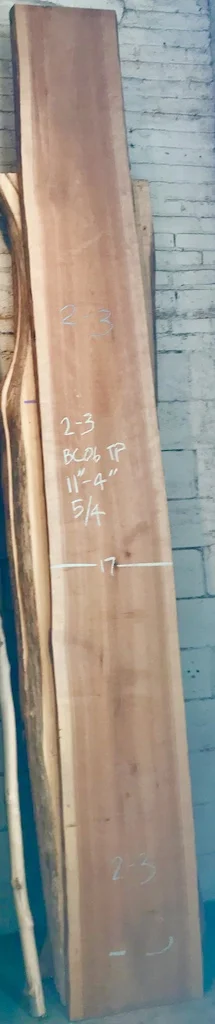 2-3
2-3
BC06 TP
11"-4"
5/4
17
2-3